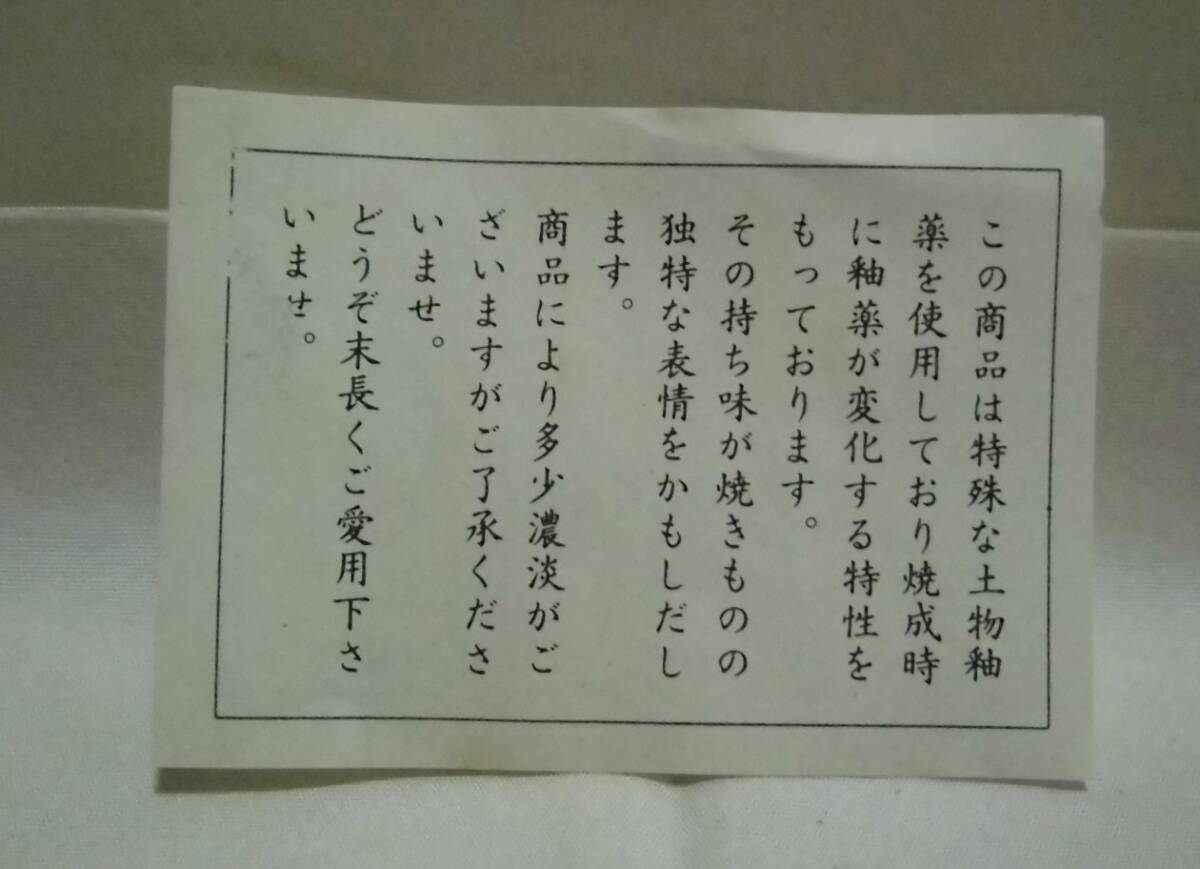 この商品は特殊な土物釉
薬を使用しており焼成時
に釉薬が変化する特性を
もっております。
その持ち味が焼きものの
独特な表情をかもしだし
ます。
商品により多少濃淡がご
ざいますがご了承くださ
いませ。
どうぞ末長くご愛用下さ
いませ。